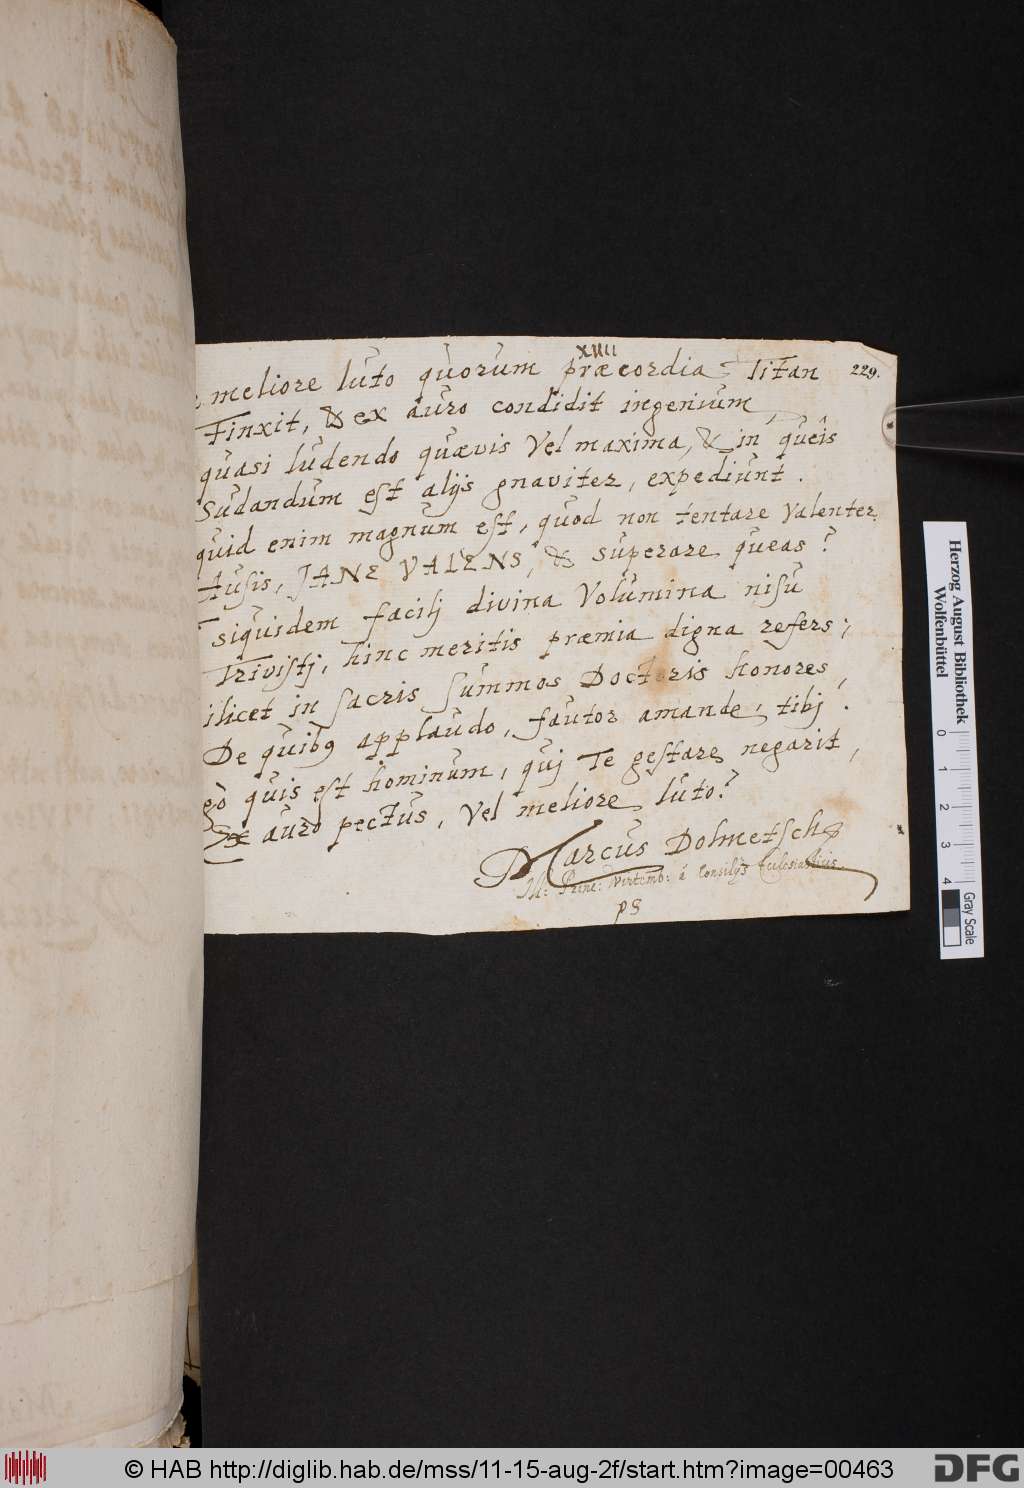 XIIII
229.
meliore luto quorum præcordia Titan
Finxit, & ex auro condidit ingenium,
quasi ludendo quævis vel maxima, & in queîs
Sudandum est alijs gnaviter, expediunt.
quid enim magnum est, quod non tentare valenter
Ausis, JANE VALENS, & superare queas?
siquidem facilj divina volumina nisu
Trivistj, hinc meritis præmia digna refers;
ilicet in sacris summos Doctoris honores,
De quibus applaudo, fautor amande, tibj.
quis est hominum, quj Te gestare negarit,
Ex auro pectus, vel meliore luto?
Marcus Dolmetsch
Ill: Princ: Wirtemb: á Consilijs Ecclesiasticis
ps
Herzog August Bibliothek
Wolfenbüttel
0 1 2 3 4
Gray Scale
© HAB http://diglib.hab.de/mss/11-15-aug-2f/start.htm?image=00463
DFG